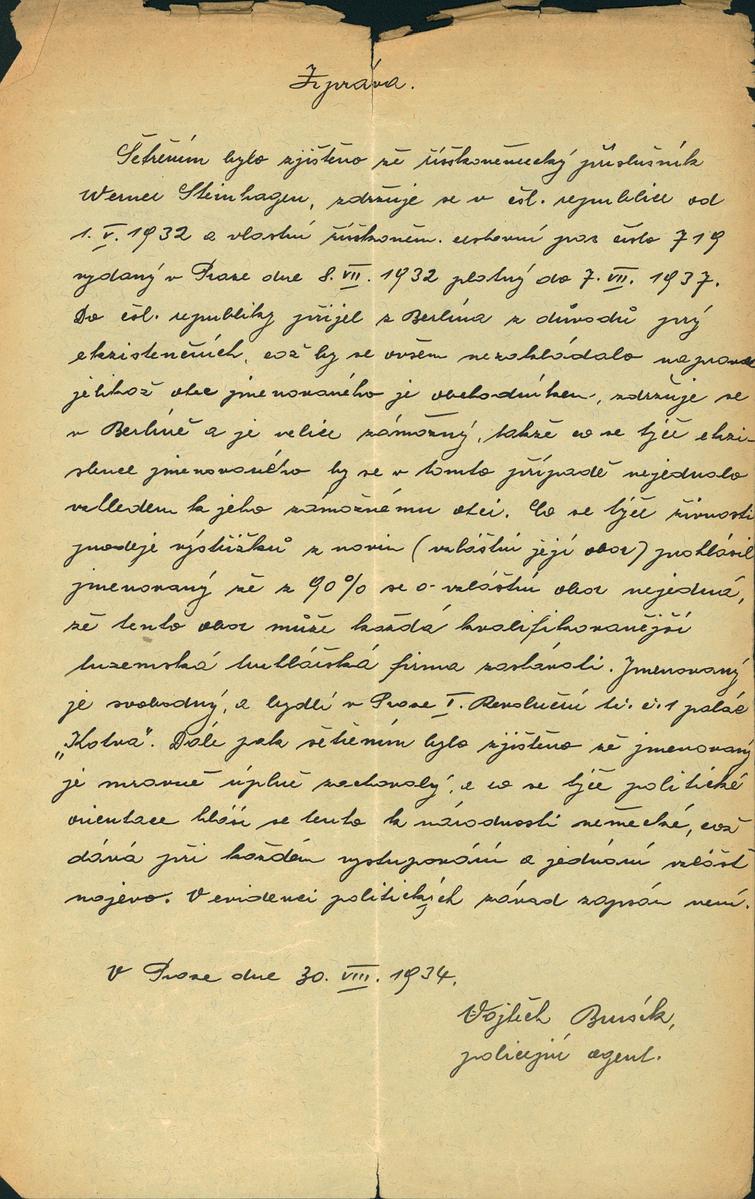 Zpráva.
Šetřením bylo zjištěno že říšskoněmecký příslušník
Werner Steinhagen, zdržuje se v čsl. republice od
1. V. 1932 a vlastní říšskoněm. cestovní pas číslo 719
vydaný v Praze dne 8. VII. 1932 platný do 7. VII. 1937.
Do čsl. republiky přijel z Berlína z důvodů prý
ekzistenčních, což by se ovšem nezakládalo na pravdě
jelikož otec jmenovaného je obchodníkem, zdržuje se
v Berlíně a je velice zámožný, takže co se týče ekzi-
stence jmenovaného by se v tomto případě nejednalo
vzhledem k jeho zámožnému otci. Co se týče živnosti
prodeje výstřižků z novin (zvláštní její obor) prohlásil
jmenovaný že z 90% se o zvláštní obor nejedná,
že tento obor může každá kvalifikovanější
tuzemská truhlářská firma zastávati. Jmenovaný
je svobodný, a bydlí v Praze I. Revoluční tř. č. 1 palác
„Kotva". Dále pak šetřením bylo zjištěno že jmenovaný
je mravně úplně zachovalý, a co se týče politické
orientace hlásí se tento k národnosti německé, což
dává při každém vystupování a jednání zvlášť
najevo. V evidenci politických závad zapsán není.
V Praze dne 30. VIII. 1934.
Vojtěch Brusík,
policejní agent.